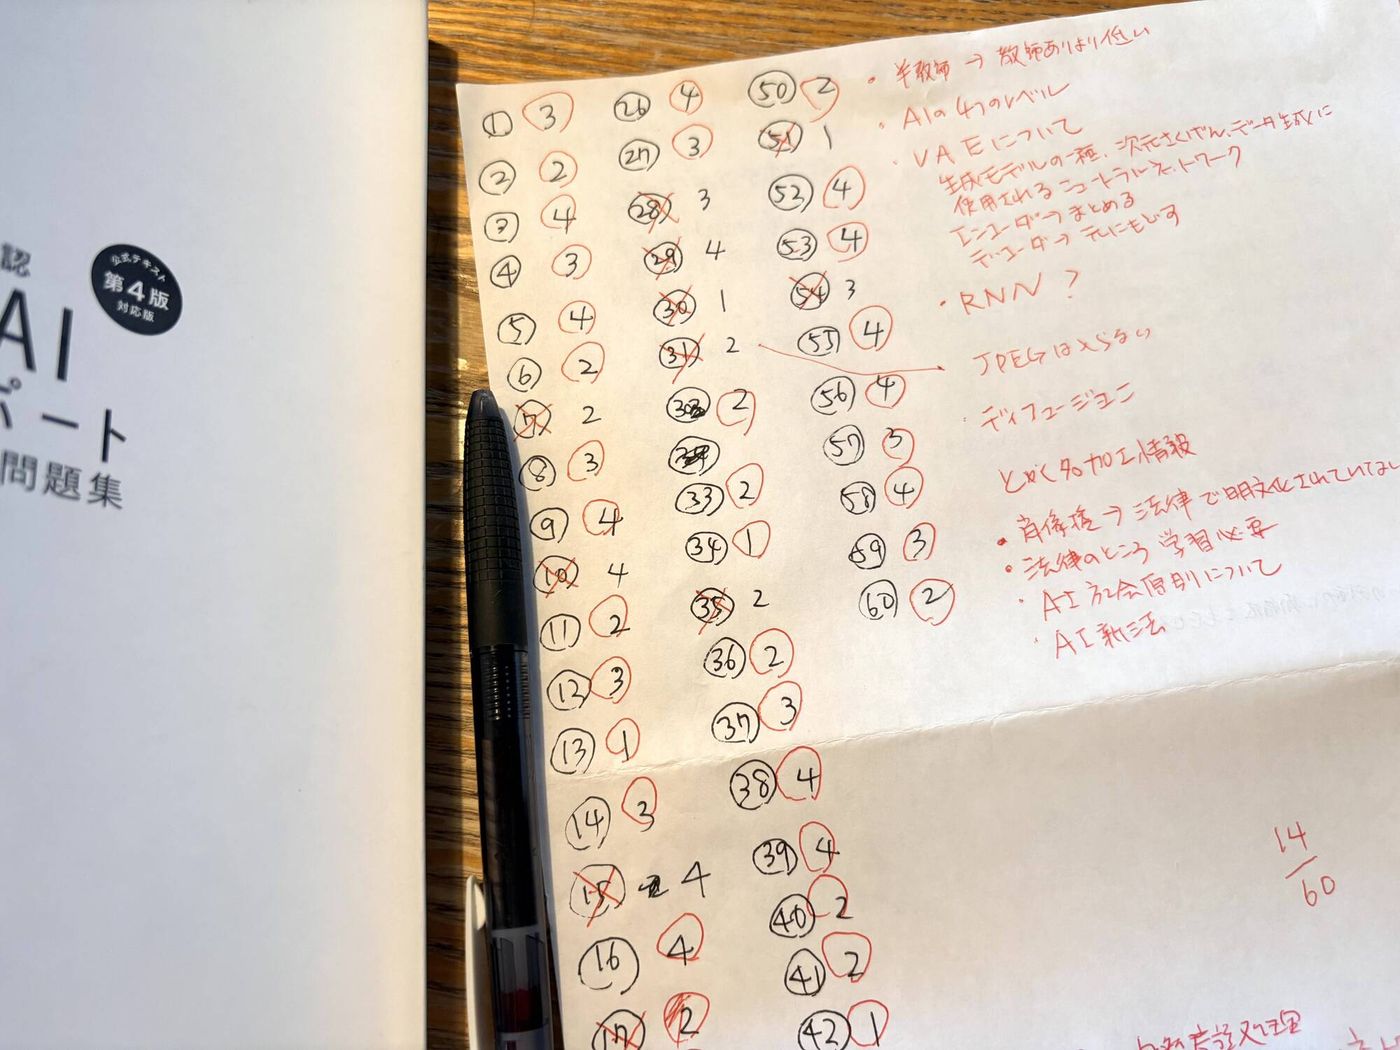 認
AI
ポート
問題集
公式テキスト
第4版
対応版
① 3
② 2
③ 4
④ 3
⑤ 4
⑥ 2
⑦ 2
⑧ 3
⑨ 4
⑩ 4
⑪ 2
⑫ 3
⑬ 1
⑭ 3
⑮ 4
⑯ 4
⑰ 2
㉖ 4
㉗ 3
㉘ 3
㉙ 4
㉚ 1
㉛ 2
㉜ 2
㉝ 2
㉞ 1
㉟ 2
㊱ 2
㊲ 3
㊳ 4
㊴ 4
㊵ 2
㊶ 2
㊷ 1
㊿ 2
51 1
52 4
53 4
54 3
55 4
56 4
57 3
58 4
59 3
60 2
・半教師→教師ありより低い
・AIの4つのレベル
・VAEについて
生成モデルの一種、次元さくげん、データ生成に
使用されるニュートラルネットワーク
エンコーダ→まとめる
デコーダ→元にもどす
・RNN?
JPEGは入らない
・ディフュージョン
とくめい加工情報
・肖像権→法律で明文化されていない
・法律のところ 学習必要
・AI社会原則について
・AI新法
14
60